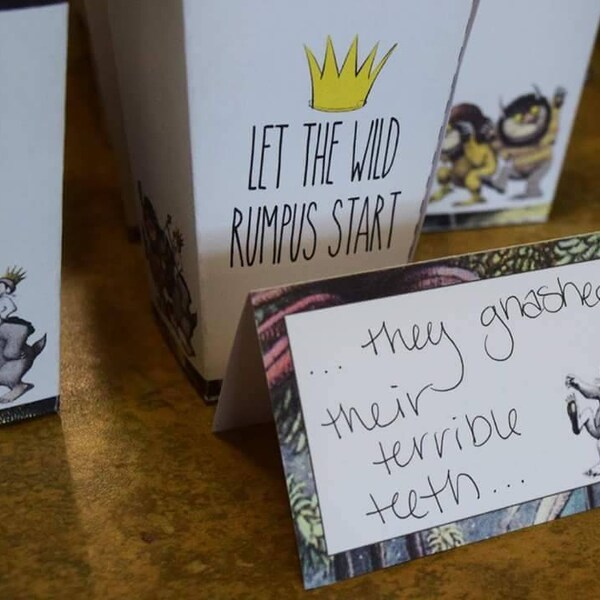 LET THE WILD
RUMPUS START
... they gnashed
their
terrible
teeth...